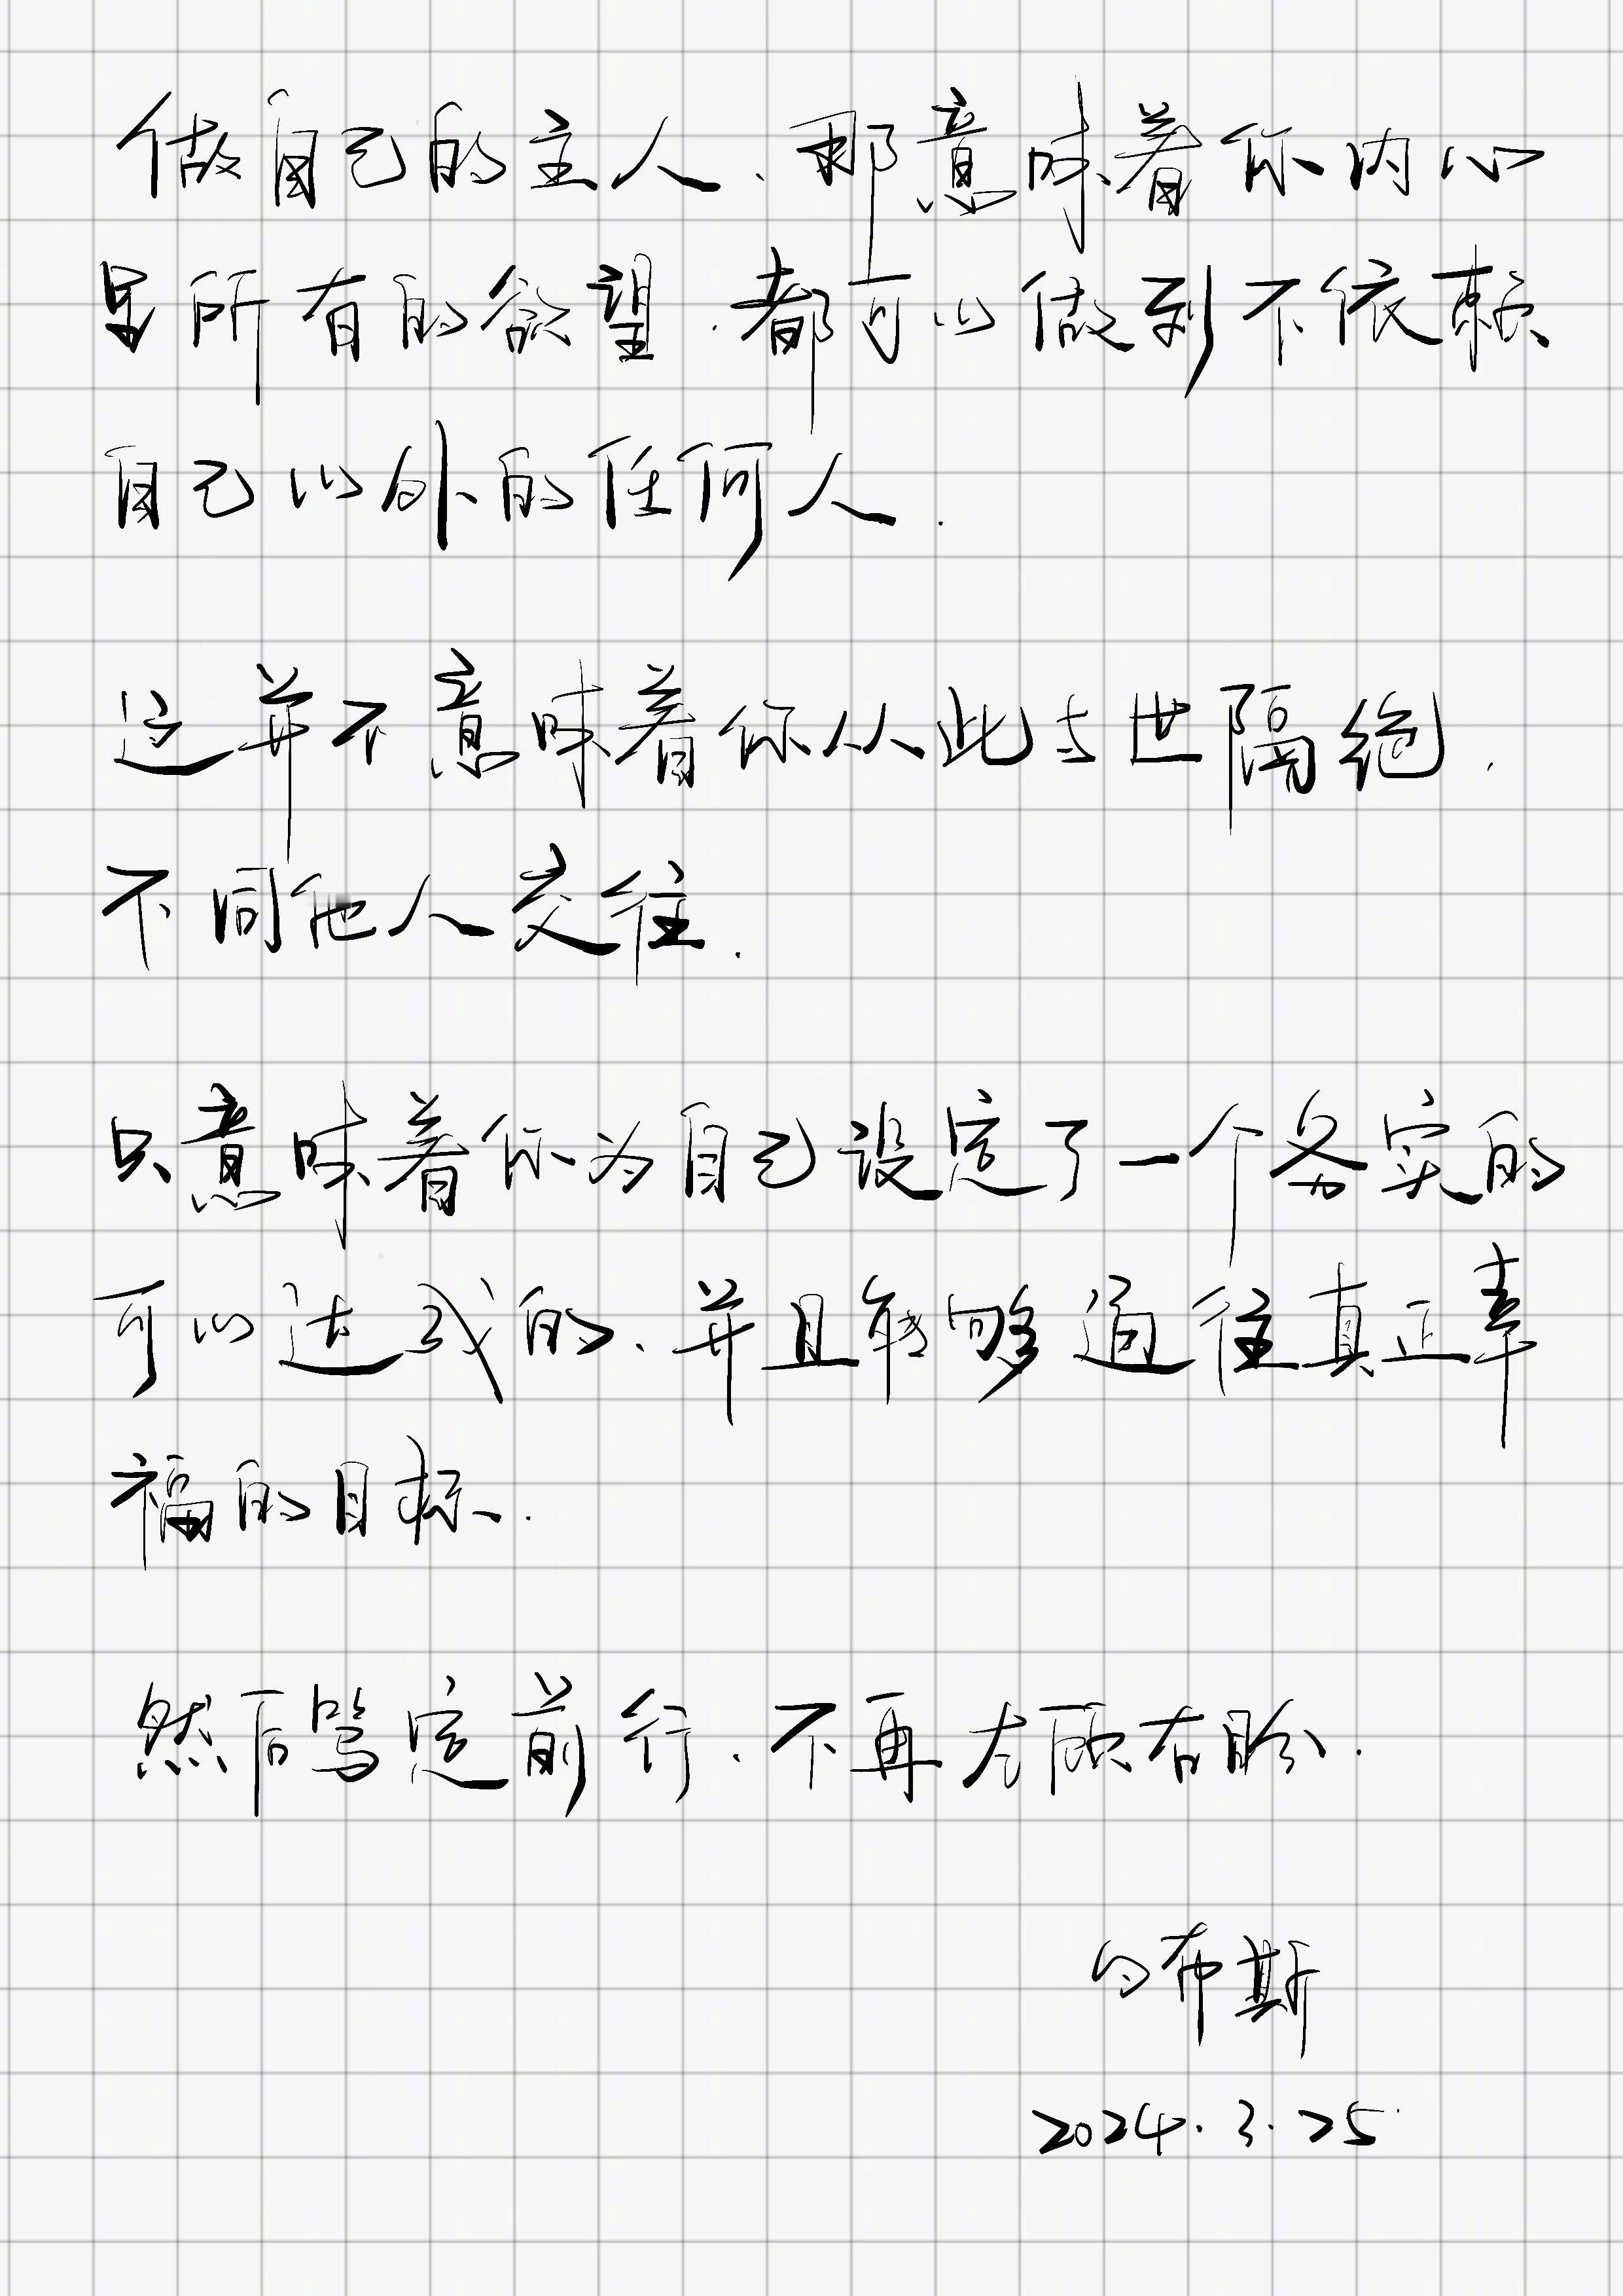 做自己的主人、那意味着你内心
里所有的欲望.都可以做到不依赖
自己以外的任何人.
这并不意味着你从此与世隔绝.
不同他人交往.
只意味着你为自己设定了一个务实的
可以达成的、并且能够通往真正幸
福的目标.
然后笃定前行.不再左顾右盼.
布斯
2024.3.25